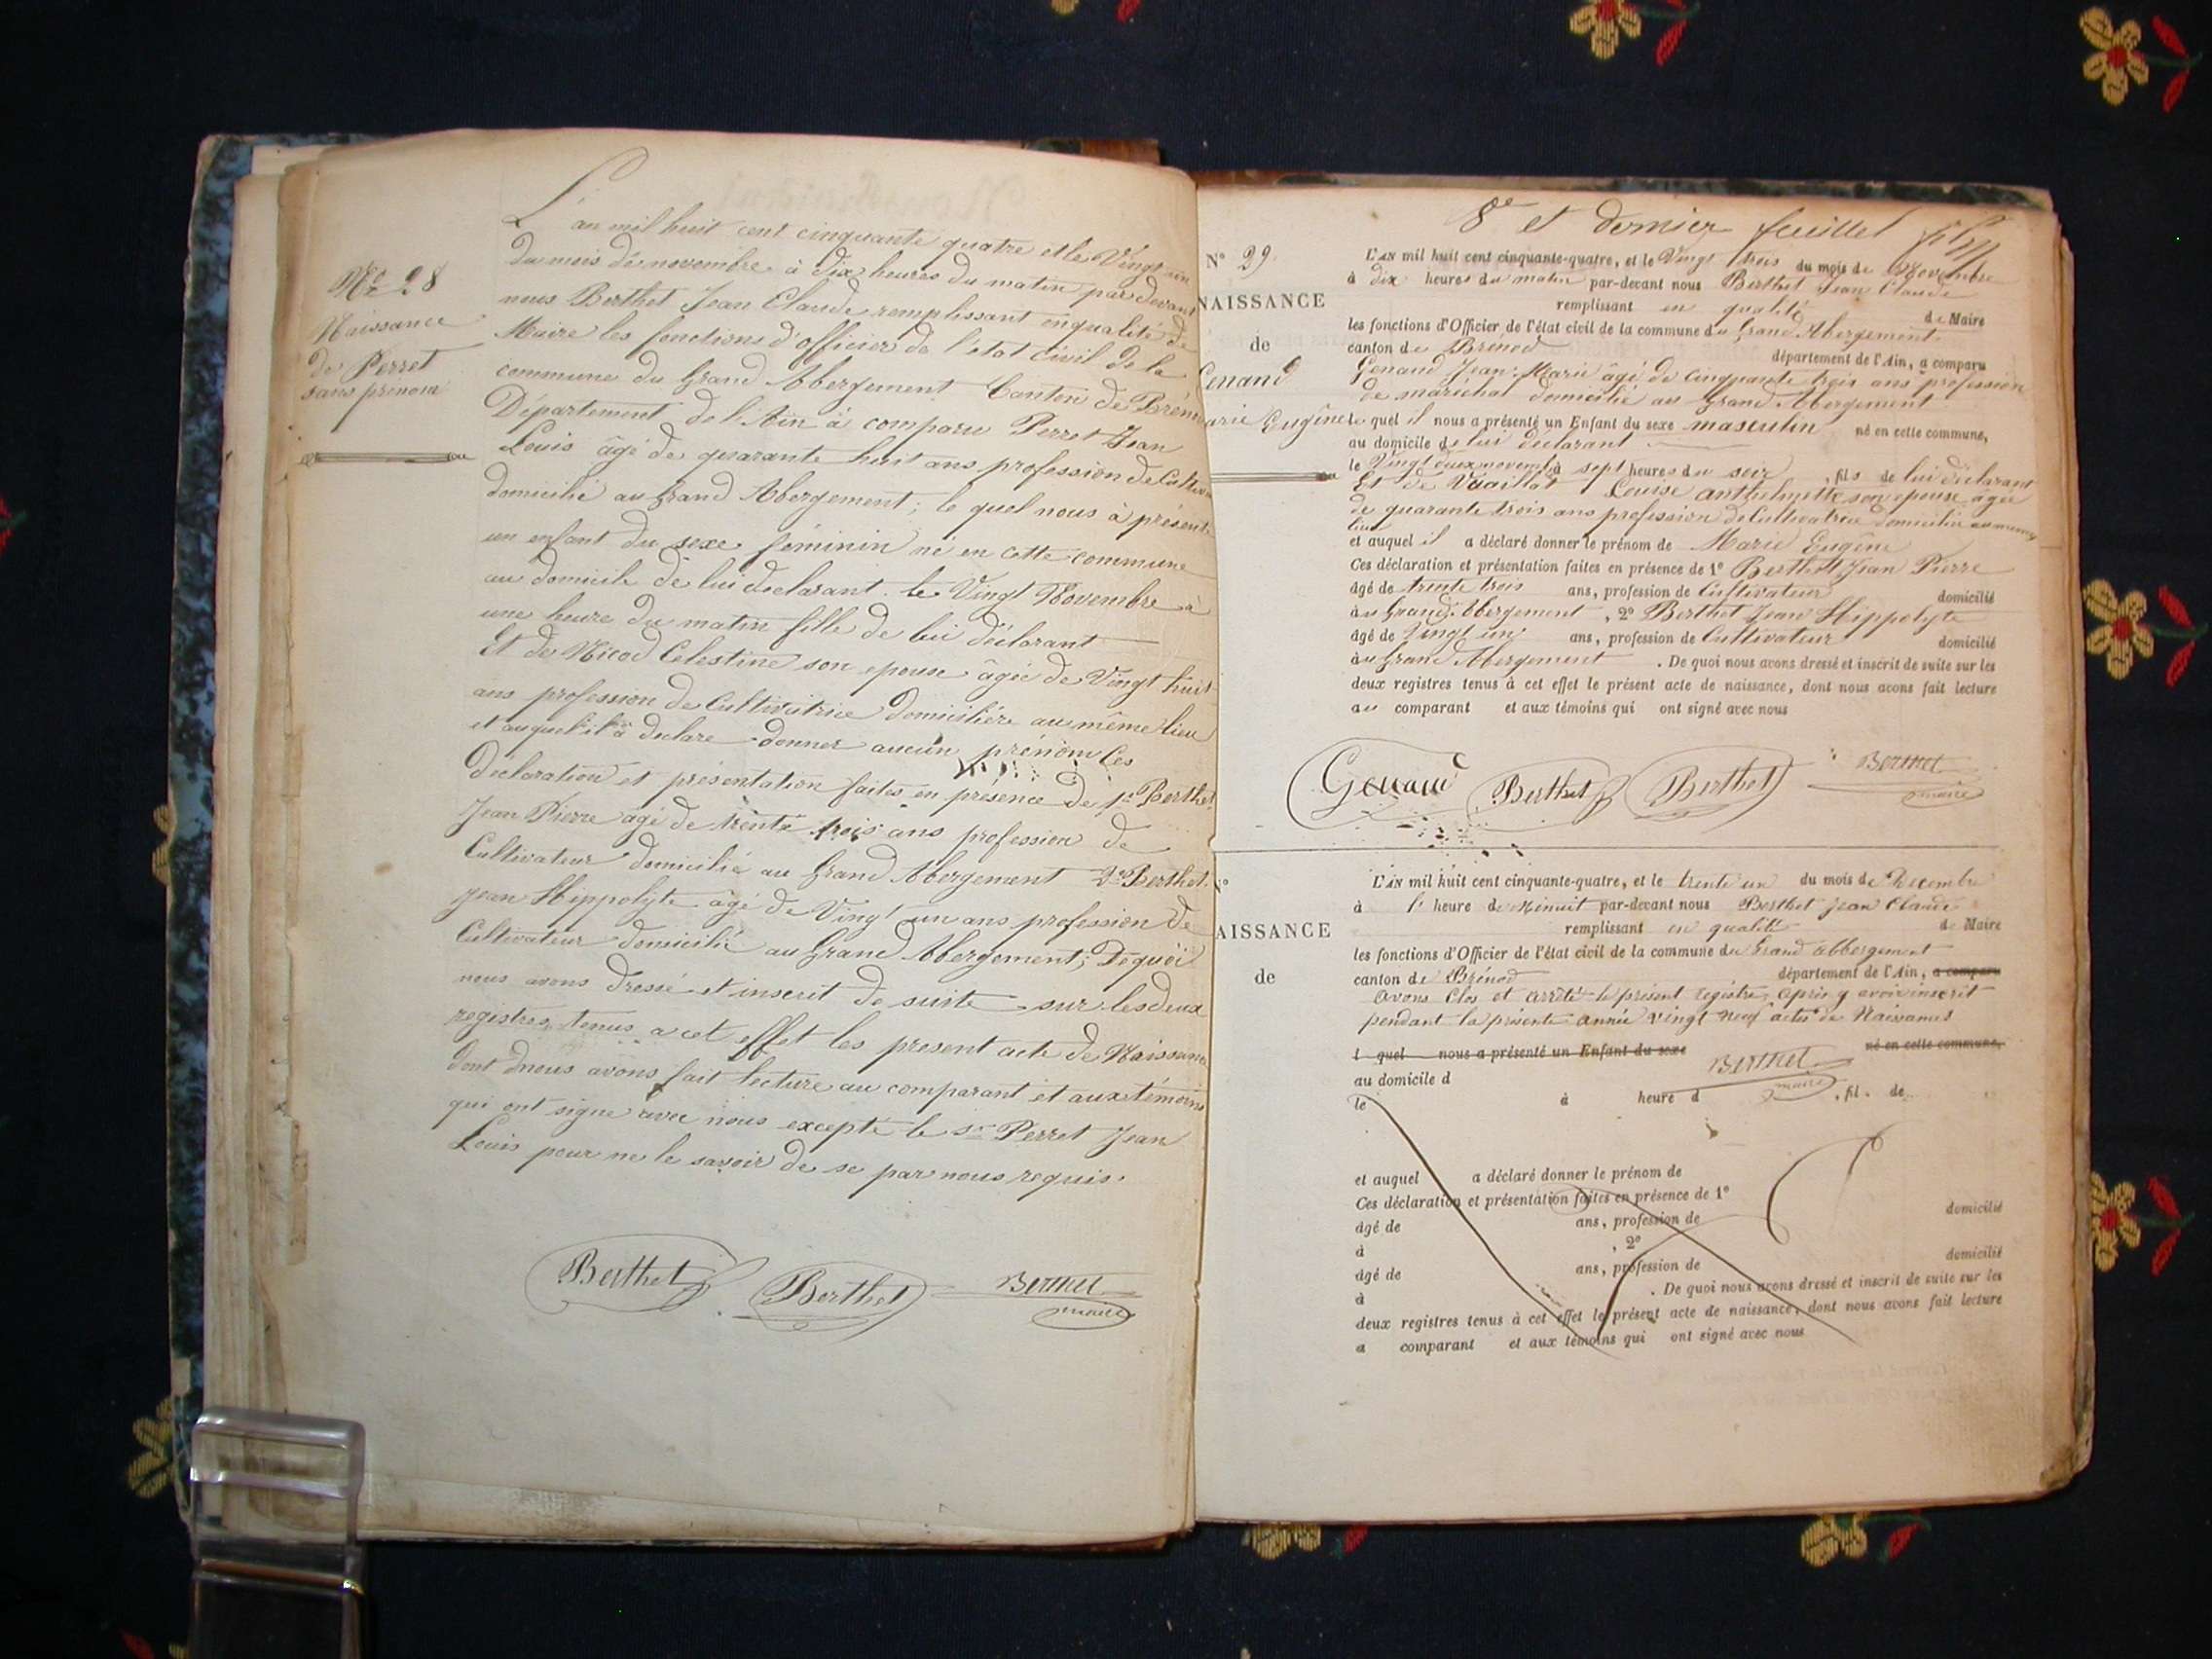 Nº 28
Naissance
de Perret
sans prénom
L'an mil huit cent cinquante quatre et le Vingt un
du mois de novembre à dix heures du matin par devant
nous Berthet Jean Claude remplissant en qualité de
Maire les fonctions d'officier de l'état civil de la
commune du Grand Abergement Canton de Brénod
Département de l'Ain à comparu Perret Jean
Louis âgé de quarante huit ans profession de Cultiva
domicilié au Grand Abergement ; le quel nous à présenté
un enfant du sexe féminin né en cette commune
au domicile de lui déclarant le Vingt Novembre à
une heure du matin fille de lui déclarant
Et de Nicod Celestine son epouse âgée de Vingt huit
ans profession de Cultivatrice domicilière au même lieu
et auquel il à declare donner aucun prénom Ces
déclaration et présentation faites en présence de 1º Berthet
Jean Pierre agé de trente trois ans profession de
Cultivateur domicilié au Grand Abergement 2º Berthet
Jean Hippolyte âgé de Vingt un ans profession de
Cultivateur domicilié au Grand Abergement ; De quoi
nous avons dressé et inscrit de suite sur les deux
registres tenus a cet effet les present acte de Naissance
dont dnous avons fait lecture au comparant et aux témoins
qui ont signe avec nous excepté le sr Perret Jean
Louis pour ne le savoir de se par nous requis.
Berthet Berthet Berthet
maire
8e et dernier feuillet
Nº 29
NAISSANCE
de
Genand
Marie Eugêne
L'AN mil huit cent cinquante-quatre, et le Vingt trois du mois de Novembre
à dix heures du matin par-devant nous Berthet Jean Claude
remplissant en qualité de Maire
les fonctions d'Officier de l'état civil de la commune du Grand Abergement
canton de Brénod département de l'Ain, a comparu
Genand Jean-Marie âgé de Cinquante trois ans profession
de maréchal domicilié au Grand Abergement
le quel il nous a présenté un Enfant du sexe masculin né en cette commune,
au domicile de lui déclarant
le Vingt deux novembre à sept heures du soir, fils de lui déclarant
Et de Vuaillat Louise Anthelmette son epouse agée
de quarante trois ans profession de Cultivatrice domiciliée au meme
lieu
et auquel il a déclaré donner le prénom de Marie Eugêne
Ces déclaration et présentation faites en présence de 1º Berthet Jean Pierre
âgé de trente trois ans, profession de Cultivateur domicilié
au Grand Abergement, 2º Berthet Jean Hippolyte
âgé de Vingt un ans, profession de Cultivateur domicilié
au Grand Abergement. De quoi nous avons dressé et inscrit de suite sur les
deux registres tenus à cet effet le présent acte de naissance, dont nous avons fait lecture
au comparant et aux témoins qui ont signé avec nous
Genand Berthet Berthet Berthet
maire
Nº
NAISSANCE
de
L'AN mil huit cent cinquante-quatre, et le trente un du mois de Décembre
à l' heure de Minuit par-devant nous Berthet Jean Claude
remplissant en qualité de Maire
les fonctions d'Officier de l'état civil de la commune du Grand abbergement
canton de Brénod département de l'Ain, a comparu
avons Clos et arrêté le présent registre, après y avoir inscrit
pendant la présente année vingt neuf actes de Naissances
l quel nous a présenté un Enfant du sexe né en cette commune,
Berthet
maire
au domicile d
le à heure d , fil de
et auquel a déclaré donner le prénom de
Ces déclaration et présentation faites en présence de 1º
âgé de ans, profession de domicilié
à , 2º
âgé de ans, profession de domicilié
à . De quoi nous avons dressé et inscrit de suite sur les
deux registres tenus à cet effet le présent acte de naissance, dont nous avons fait lecture
a comparant et aux témoins qui ont signé avec nous